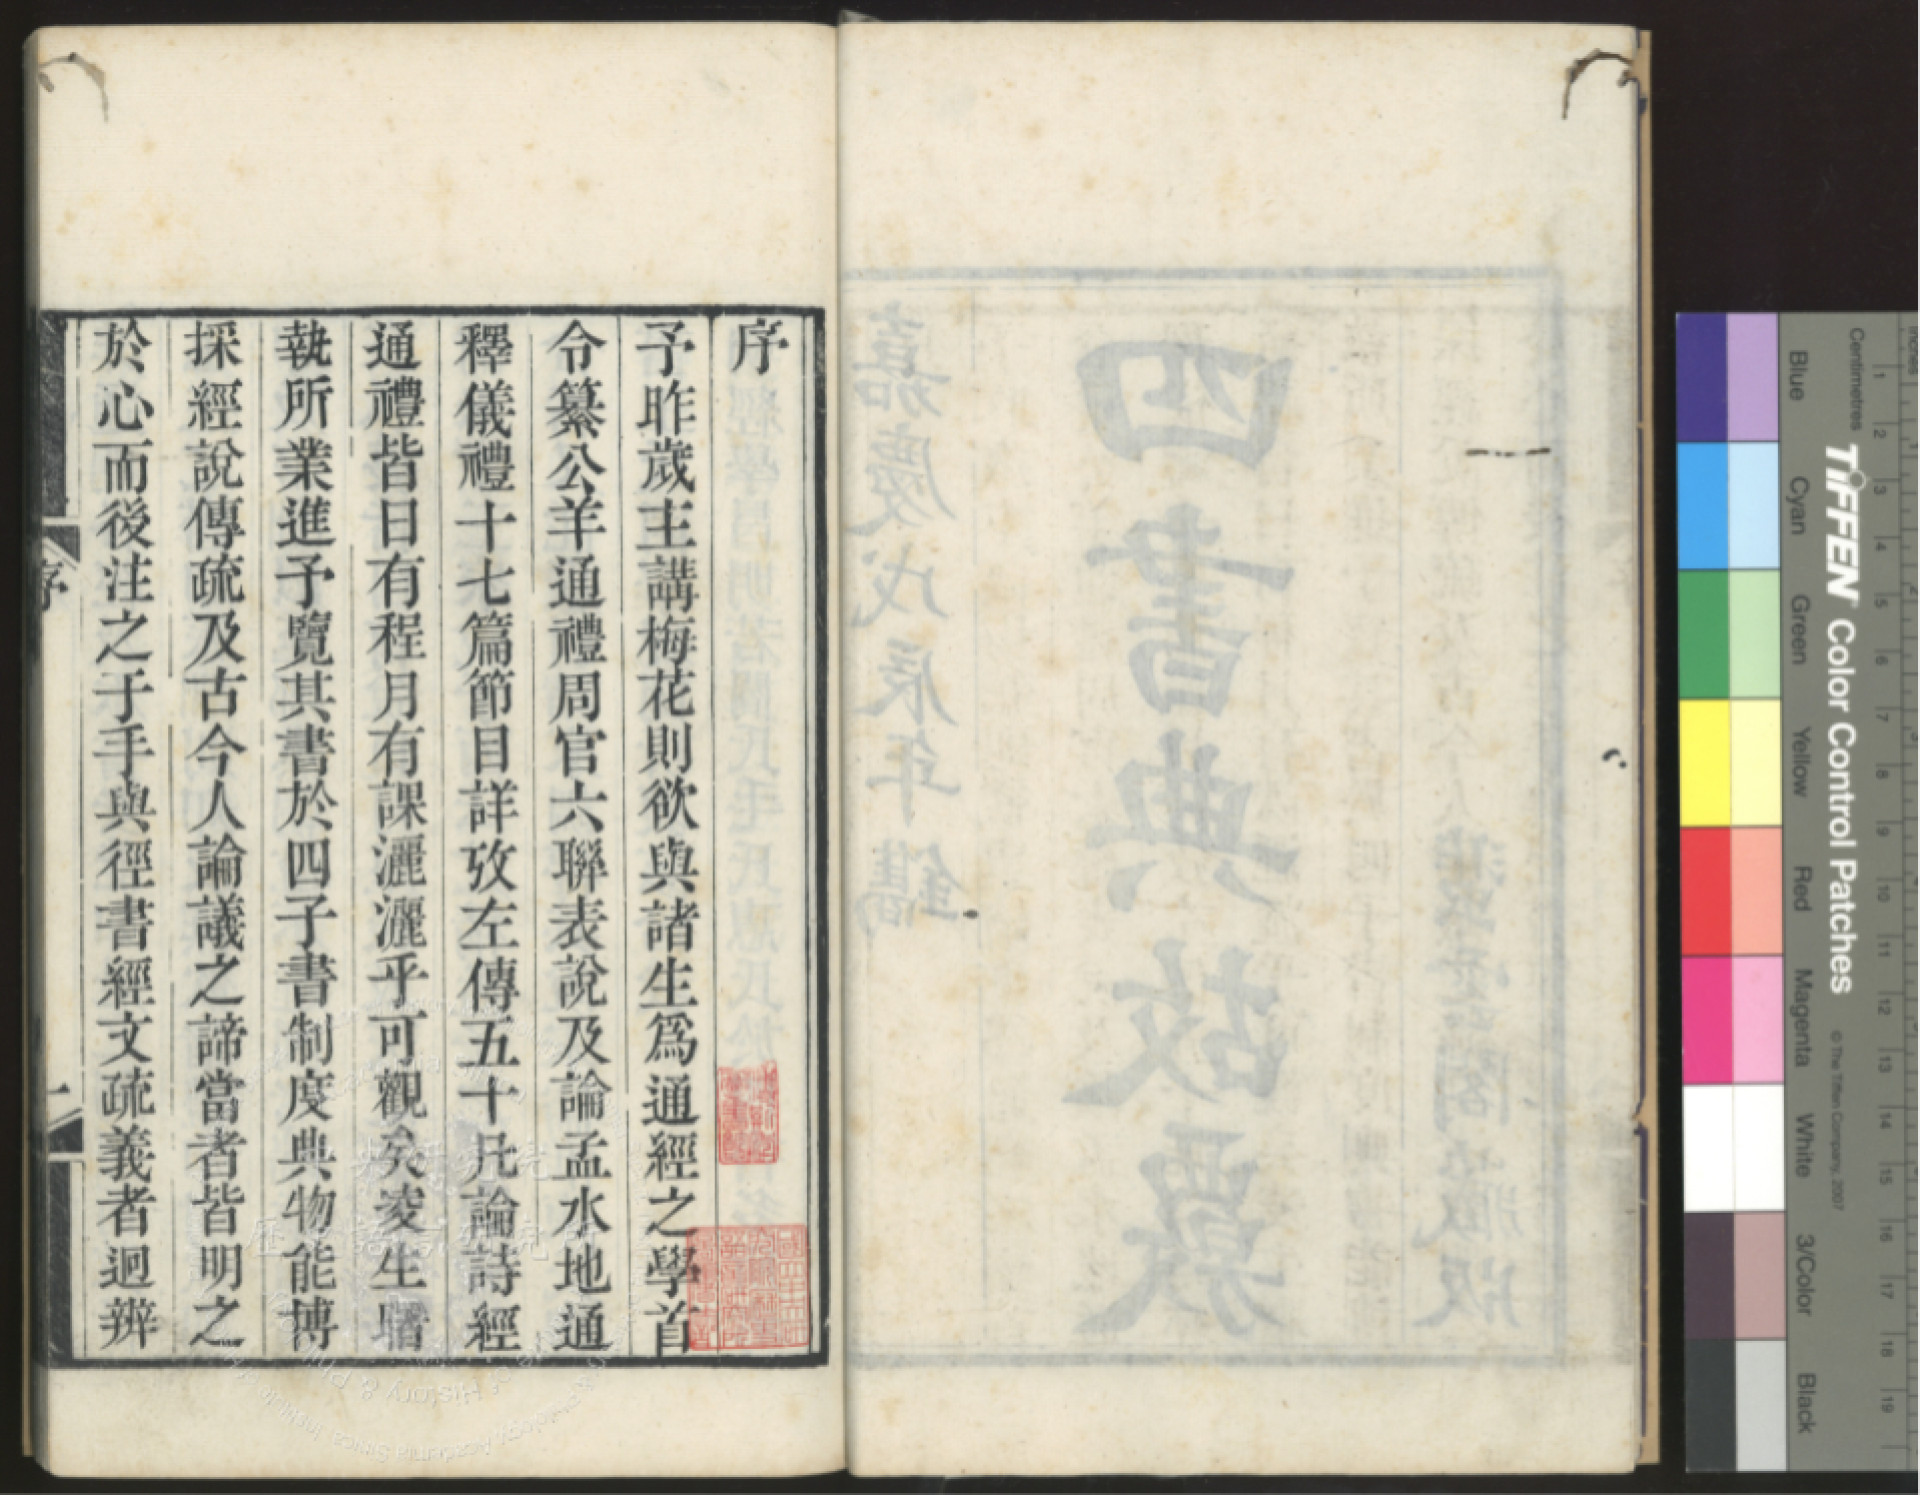 四書典故覈
嘉慶戊辰年鐫
序
予昨歲主講梅花則欲與諸生爲通經之學首
令纂公羊通禮周官六聯表說及論孟水地通
釋儀禮十七篇節目詳攷左傳五十凡論詩經
通禮皆日有程月有課灑灑乎可觀矣凌生曙
執所業進予覽其書於四子書制度典物能博
採經說傳疏及古今人論議之諦當者皆明之
於心而後注之于手與徑書經文疏義者迥辨
序
一
Centimetres
Inches
TIFFEN Color Control Patches
© The Tiffen Company, 2007
Blue
Cyan
Green
Yellow
Red
Magenta
White
3/Color
Black
1 2 3 4 5 6 7 8 9 10 11 12 13 14 15 16 17 18 19